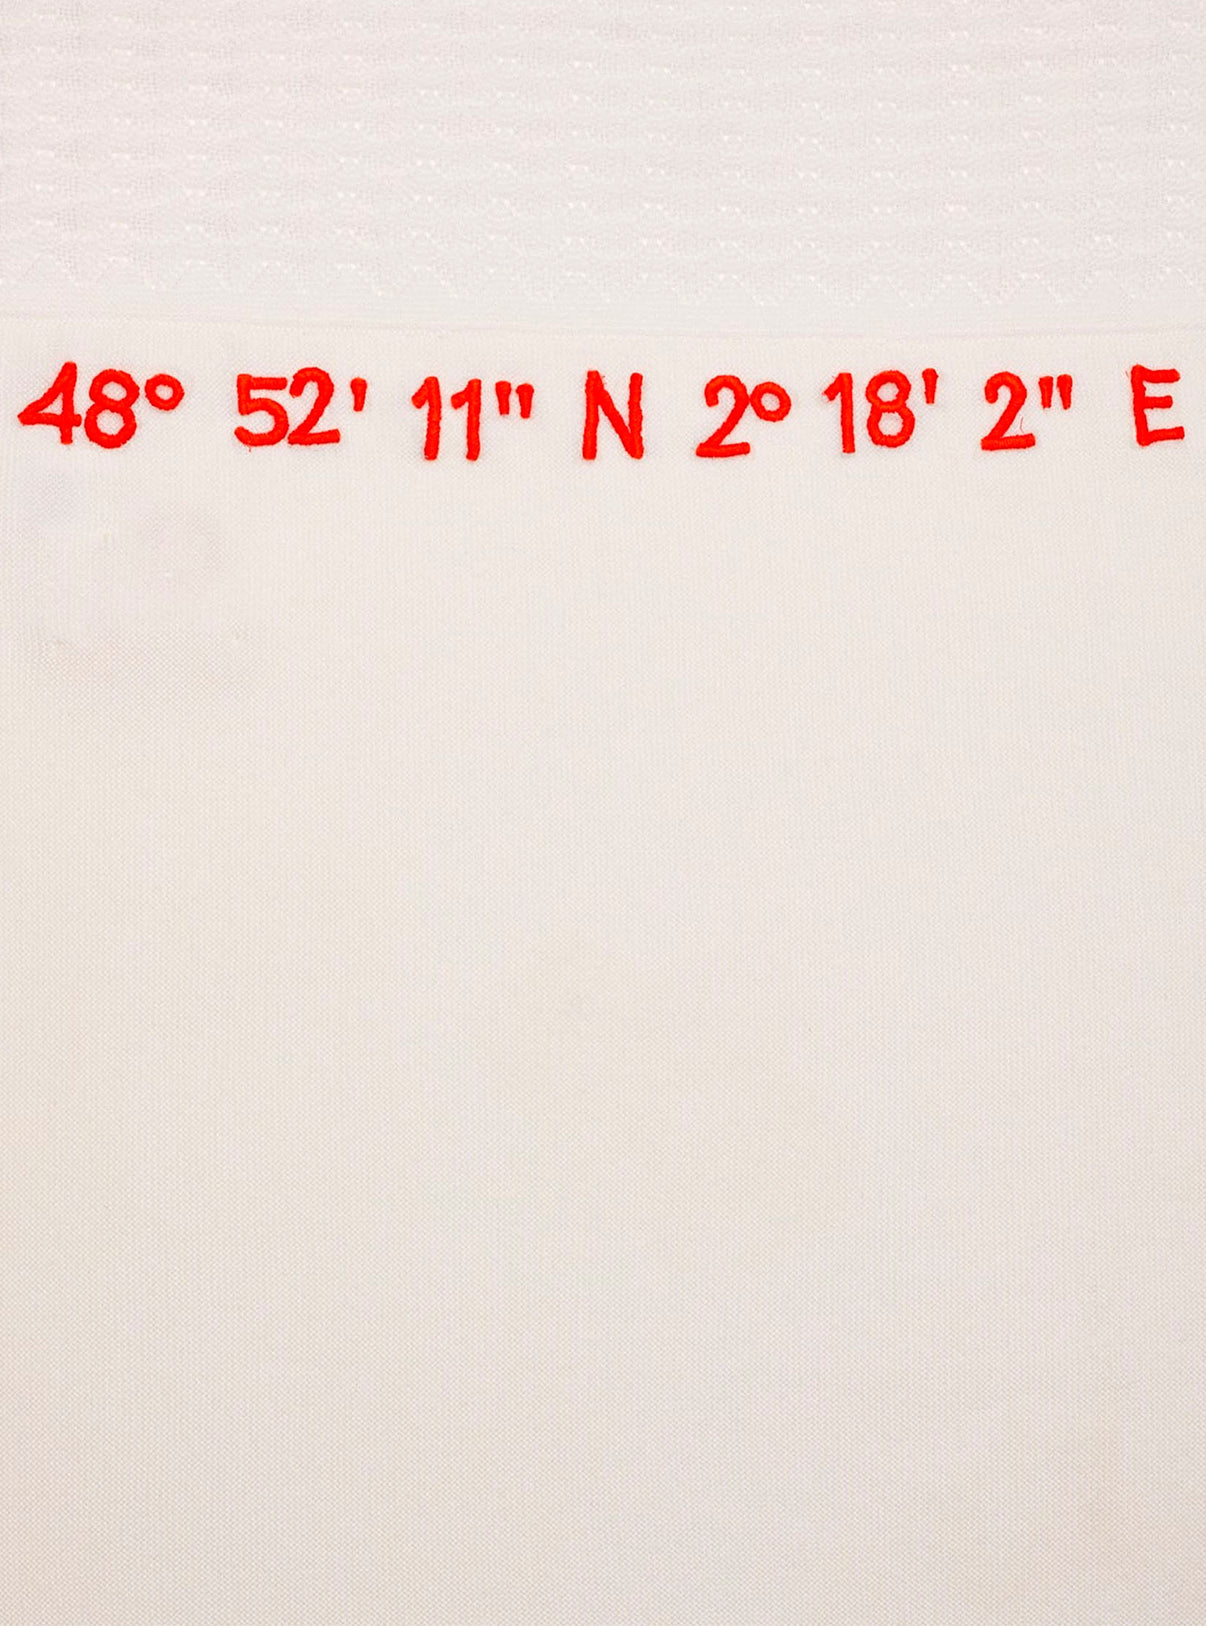 48° 52' 11" N 2° 18' 2" E